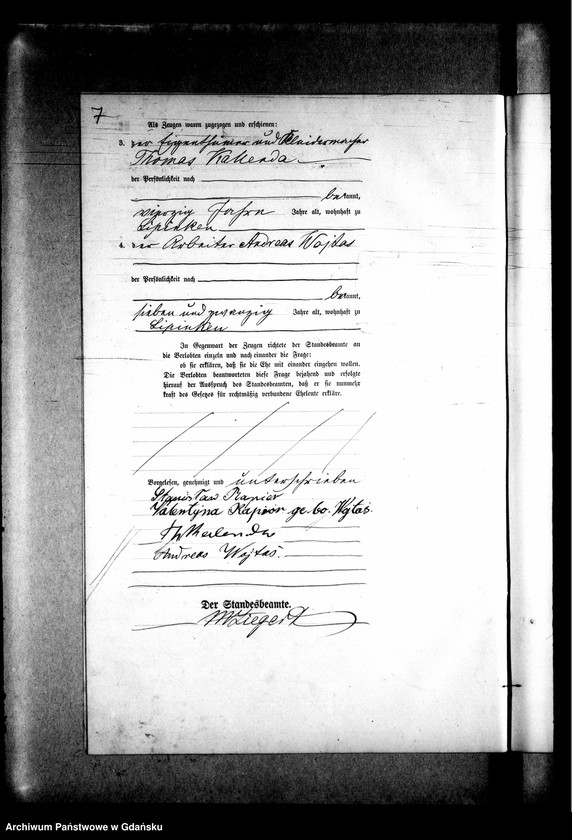 7
Als Zeugen waren zugezogen und erschienen:
3. der Eigenthümer und Kleidermacher
Thomas Kallenda
der Persönlichkeit nach
bekannt,
vierzig Jahre Jahre alt, wohnhaft zu
Lipinken
4. der Arbeiter Andreas Wojtas
der Persönlichkeit nach
bekannt,
sieben und zwanzig Jahre alt, wohnhaft zu
Lipinken
In Gegenwart der Zeugen richtete der Standesbeamte an
die Verlobten einzeln und nach einander die Frage:
ob sie erklären, daß sie die Ehe mit einander eingehen wollen.
Die Verlobten beantworteten diese Frage bejahend und erfolgte
hierauf der Ausspruch des Standesbeamten, daß er sie nunmehr
kraft des Gesetzes für rechtmäßig verbundene Eheleute erkläre.
Vorgelesen, genehmigt und unterschrieben
Stanislaw Rapior
Valentyna Rapior ge. bo. Wojtas.
Andreas Wojtas.
Der Standesbeamte.
Archiwum Państwowe w Gdańsku